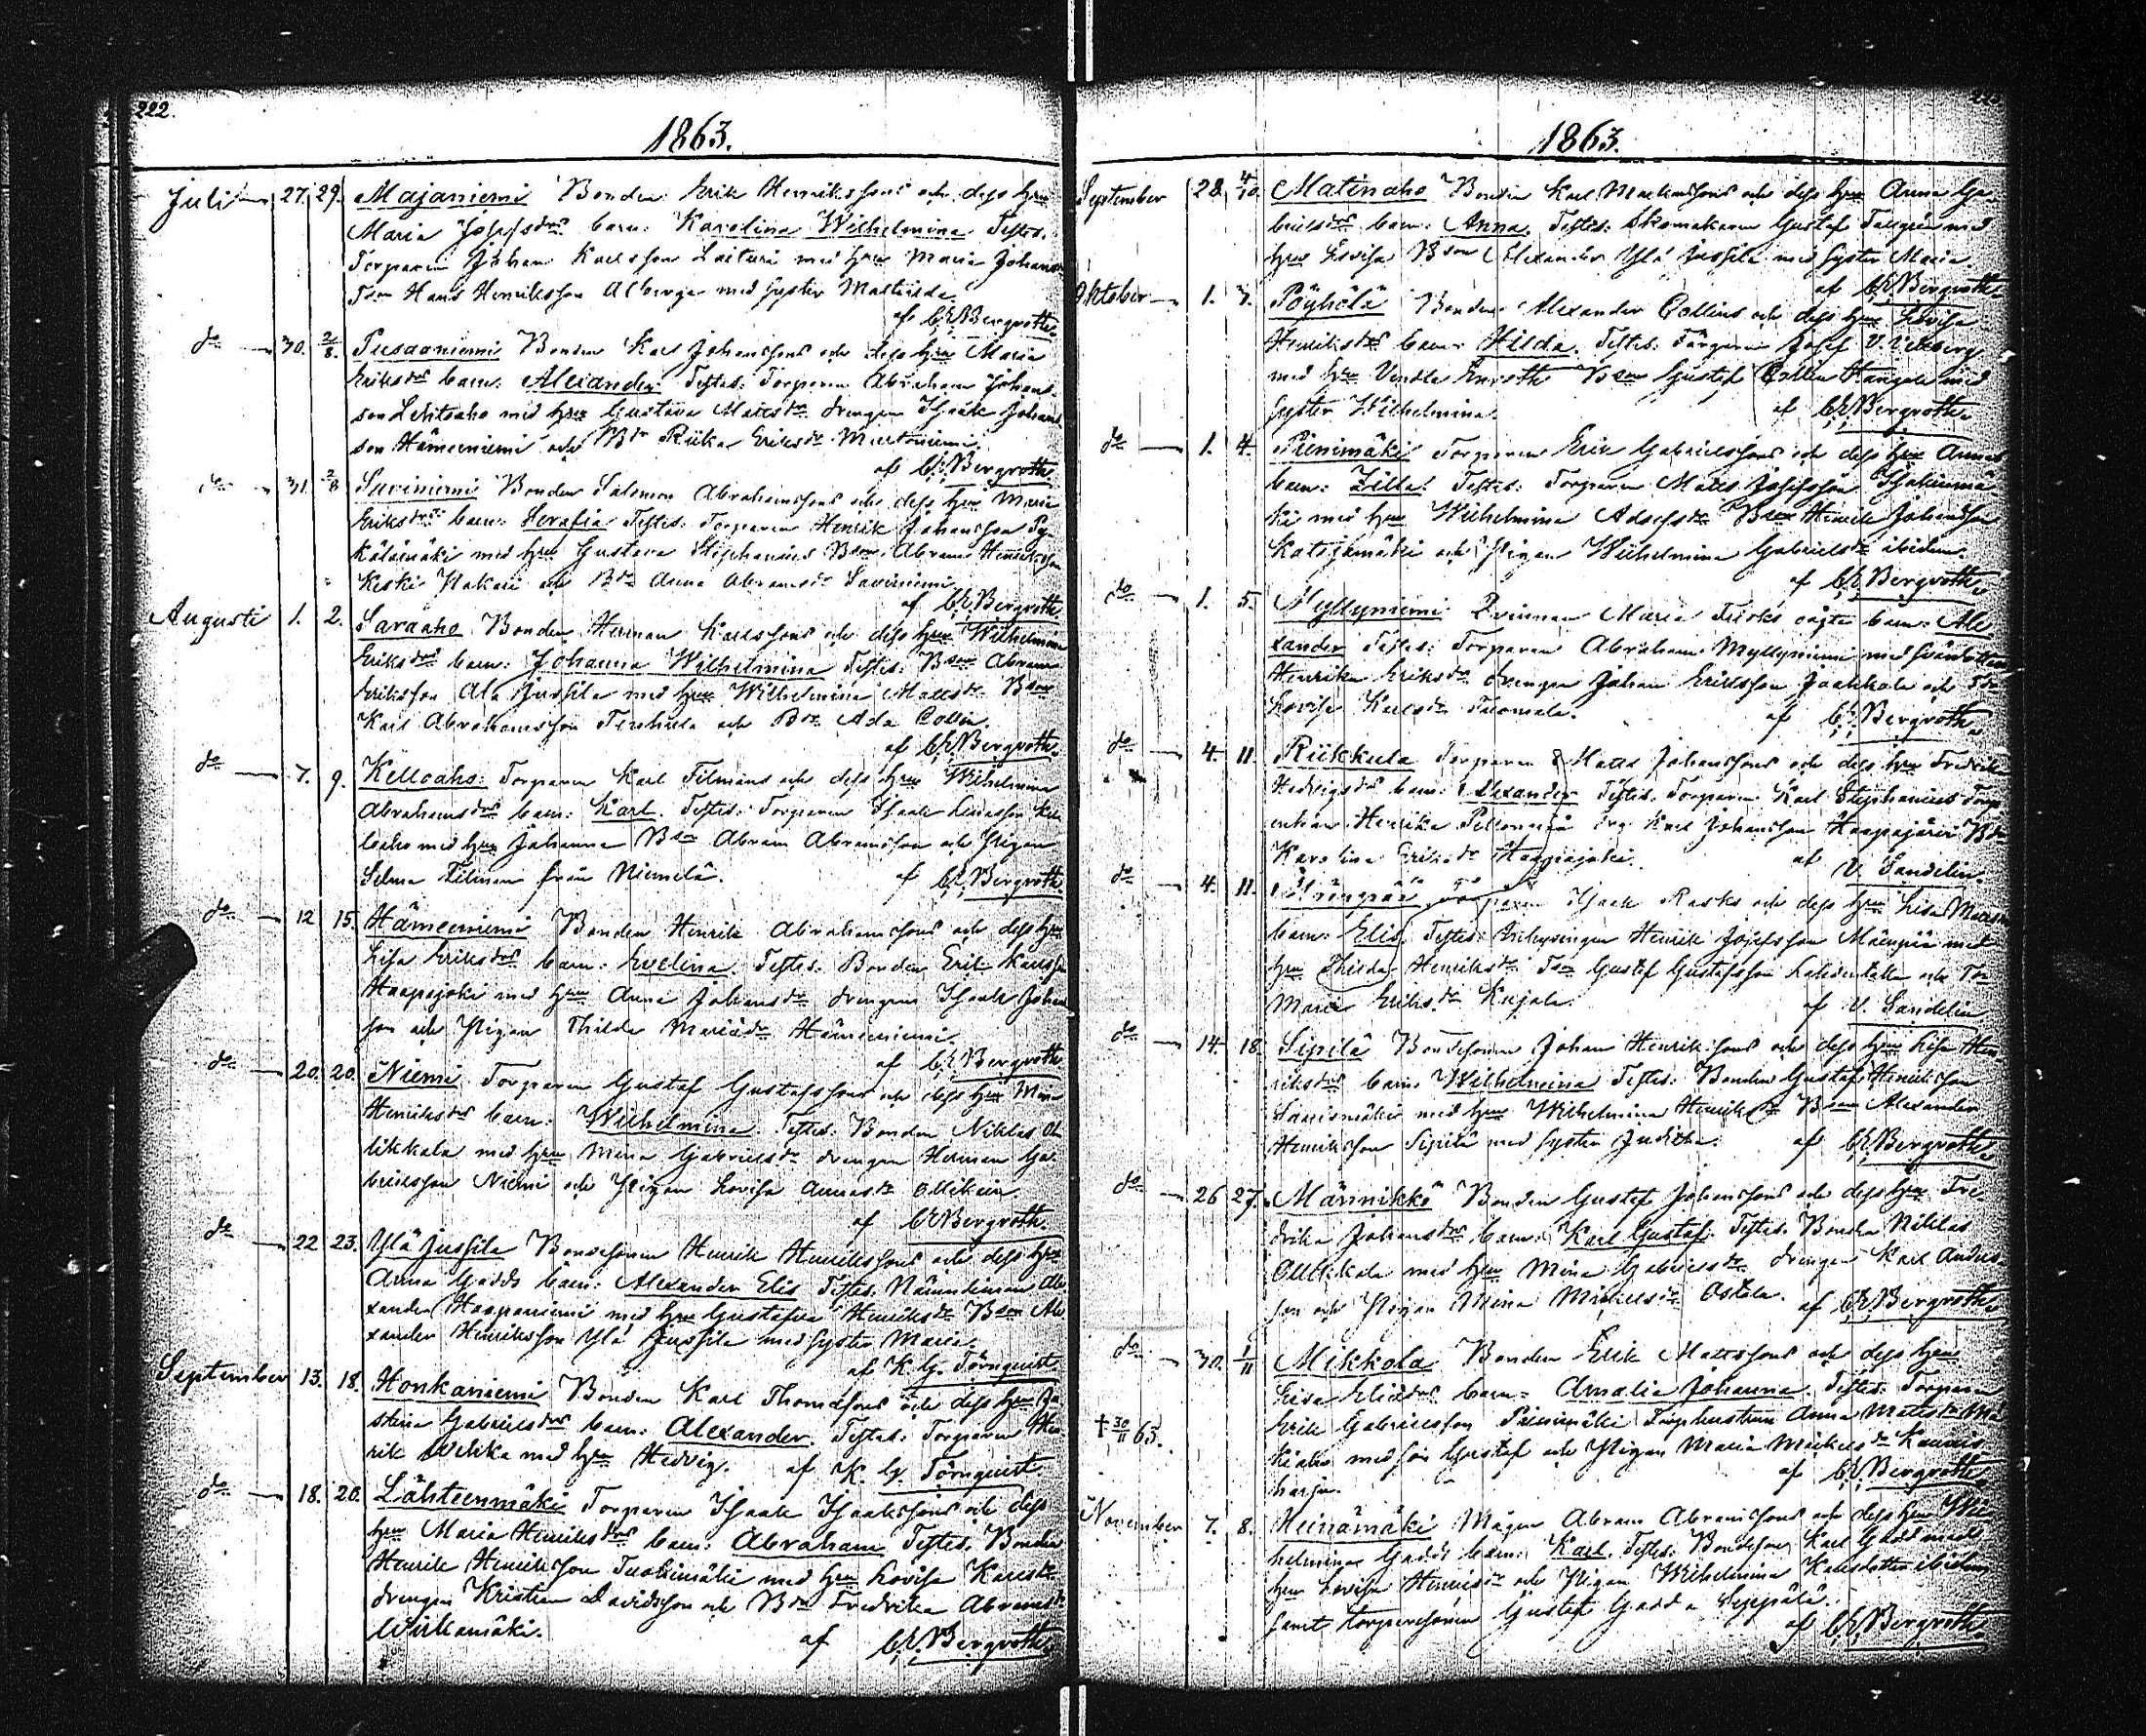 222.
1863.
Juli 27. 29. Majaniemi Bonden Erik Henrikssons och dess hru
Maria Josefsdrs barn: Karolina Wilhelmina Testes:
Torparen Johan Karlsson Laituri med hru Maria Johansdr
Tson Hans Henriksson med syster Mathilda.
af C.E. Bergroth.
do 30. 2/8. Pusaaniemi Bonden Karl Johanssons och dess hru Maria
Eriksdrs barn: Alexander Testes: Torparen Abraham Johans-
son Lehtsaho med hru Gustava Mattsdr drengen Isaak Johans-
son Hämeeniemi och Bdr Riika Eriksdr
af C.E. Bergroth.
do 31. 2/8 Saviniemi Bonden Salomon Abrahamssons och dess hru Maria
Eriksdrs barn: Serafia Testes: Torparen Henrik Johansson Py-
kälämäki med hru Gustava Stephanius Bson Abram Henriksson
Keski Hakari och Bdr Anna Abramsdr Saviniemi
af C.E. Bergroth.
Augusti 1. 2. Saraaho Bonden Herman Karlssons och dess hru Wilhelmina
Eriksdrs barn: Johanna Wilhelmina Testes: Bson Abram
Eriksson Ala Jussila med hru Wilhelmina Mattsdr Bson
Karl Abrahamsson och Bdr Ada Collin.
af C.E. Bergroth.
do 7. 9. Kelloaho: Torparen Karl Tilmans och dess hru Wilhelmina
Abrahamsdrs barn: Karl. Testes: Torparen Isaak Kel-
loaho med hru Johanna Bson Abram Abramsson och Pigan
Selma Tilman från Niemelä. af C.E. Bergroth.
do 12 15. Hämeeniemi Bonden Henrik Abrahamssons och dess hru
Lisa Eriksdrs barn: Evelina. Testes: Bonden Erik Karlsson
Haapajoki med hru Anna Johansdr drengen Isaak Johans-
son och Pigan Thilda Mariädr Hämeeniemi.
af C.E. Bergroth.
do 20. 20. Niemi Torparen Gustaf Gustafssons och dess hru Maria
Henriksdrs barn: Wilhelmina. Testes: Bonden Niklas Ol-
likkala med hru Mina Gabrielsdr drengen Herman Ga-
brielsson Niemi och Pigan Lovisa Annasdr
af C.E. Bergroth.
do 22 23. Ylä Jussila Bondesonen Henrik Henrikssons och dess hru
Anna Gadds barn: Alexander Elis Testes: Nämndeman Ale-
xander Haapaniemi med hru Gustafva Henriksdr Bson Ale-
xander Henriksson Ylä Jussila med syster Maria.
af K. G. Törnquist
September 13. 18. Honkaniemi Bonden Karl Thomassons och dess hru Ju-
stina Gabrielsdrs barn: Alexander. Testes: Torparen Hen-
rik Wehka med hru Hedvig. af K. G. Törnquist
do 18. 20. Lähteenmäki Torparen Isaak Isaakssons och dess
hru Maria Henriksdrs barn: Abraham Testes: Bonden
Henrik Henriksson Tuohimäki med hru Lovisa Karlsdr
drengen Kristian Davidsson och Bdr Fredrika Abramsdr
Wirkamäki. af C.E. Bergroth.
1863.
September 28. 4/10. Matinaho Bonden Karl Mathssons och dess hru Anna Ga-
brielsdrs barn: Anna. Testes: Skomakaren Gustaf med
hru Lovisa Bson Alexander Ylä Jussila med syster Maria.
af C.E. Bergroth.
Oktober 1. 3. Pöyhölä Bonden Alexander Collins och dess hru Lovisa
Henriksdrs barn: Hilda. Testes: Färgaren Josef
med hru Vendla Enroth Bson Gustaf Collin Hangola med
syster Wilhelmina. af C.E. Bergroth.
do 1. 4. Pienimäki Torparen Erik Gabrielssons och dess hru Annas
barn: Zilla. Testes: Torparen Matts Josefsson
ki med hru Wilhelmina Adolfsdr Bson Henrik Johansson
Katajamäki och Pigan Wilhelmina Gabrielsdr ibidem.
af C.E. Bergroth.
do 1. 5. Myllyniemi Qvinnan Maria Turks oägta barn: Ale-
xander Testes: Torparen Abraham Myllyniemi med svärdotter
Henrika Eriksdr drengen Johan Eriksson Jaakkola och Tdr
Lovisa Karlsdr Tuomala. af C.E. Bergroth.
do 4 11. Riikkula Torparen Matts Johanssons och dess hru Fredrika
Hedvigsdrs barn: Alexander Testes: Torparen Karl Stephanius Torp-
enkan Henrika drg Karl Johansson Haapajärvi Bdr
Karolina Eriksdr Haapajoki. af V. Sandelin.
do 4. 11. Torparen Isaak Rasks och dess hru Lisa
barn: Elis. Testes: Inhysingen Henrik Josefsson Mäenpää med
hru Thilda Henriksdr Tson Gustaf Gustafsson och Tdr
Maria Eriksdr Kujala. af V. Sandelin
do 14. 18. Sipilä Bondesonen Johan Henrikssons och dess hru Lisa Hen-
riksdrs barn: Wilhelmina Testes: Bonden Gustaf Henriksson
med hru Wilhelmina Henriksdr Bson Alexander
Henriksson Sipilä med syster Juditha. af C.E. Bergroth.
do 26 27. Männikkö Bonden Gustaf Johanssons och dess hru Fre-
drika Johansdrs barn: Karl Gustaf. Testes: Bonden Niklas
Ollikkala med hru Mina Gabrielsdr drengen Karl Anders-
son och Pigan Mina Mickelsdr Ostola. af C.E. Bergroth.
do 30. 1/11 Mikkola Bonden Erik Mattssons och dess hru
Eliedrs barn: Amalia Johanna. Testes: Torparen
† 30/11 63. Erik Gabrielsson Pienimäki Torphustrun Anna Mattsdr
kiaho med son Gustaf och Pigan Maria Mickelsdr Kaunis-
harju. af C.E. Bergroth.
November 7. 8. Heinämäki Mågen Abram Abramssons och dess hru Wil-
helmina Gadds barn: Karl. Testes: Bondeson Karl Gadd med
hru Lovisa Henriksdr och Pigan Wilhelmina Karlsdotter ibidem
samt torparesonen Gustaf Gadd a Seppälä.
af C.E. Bergroth.